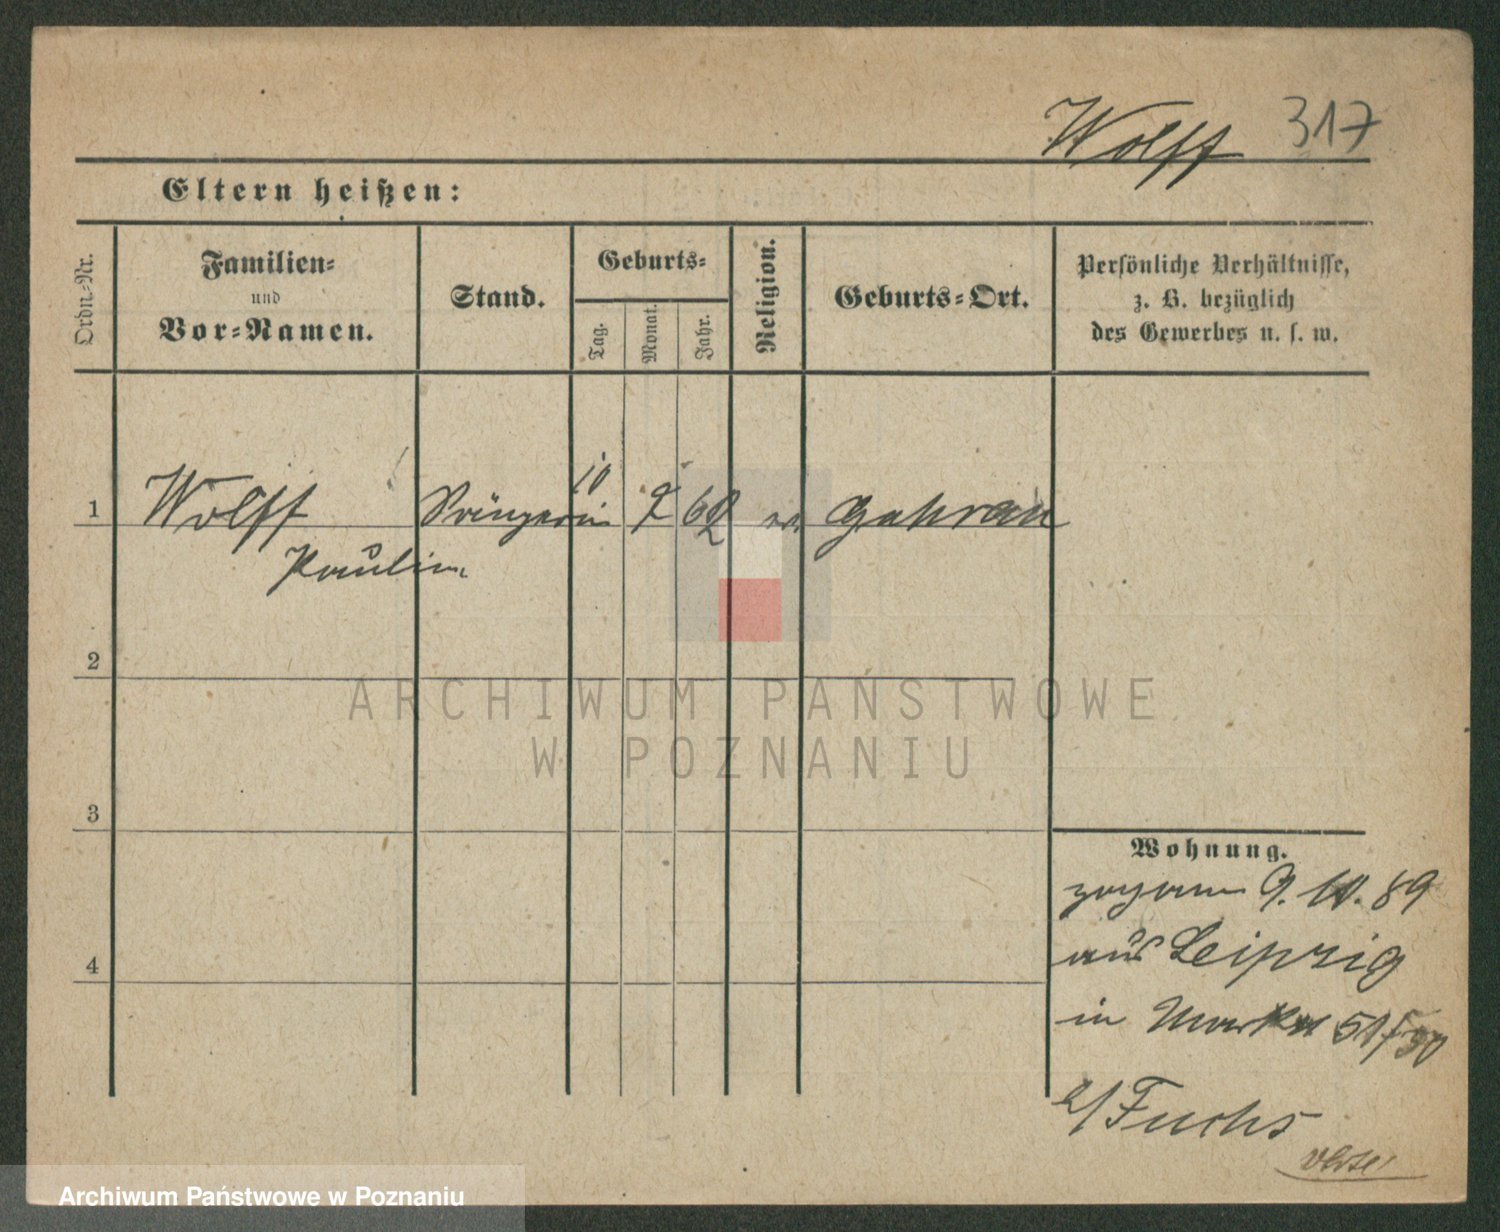 Wolff 317
Eltern heißen:
Ordn.-Nr.
Familien-
und
Vor-Namen.
Stand.
Geburts-
Tag.
Monat.
Jahr.
Religion.
Geburts-Ort.
Persönliche Verhältnisse,
z. B. bezüglich
des Gewerbes u. s. w.
10
1 Wolff Sängerin 62 ev. Guhrau
Paulin
2
ARCHIWUM PAŃSTWOWE
W POZNANIU
3
Wohnung.
zugezogen 9. 10. 89
4
aus Leipzig
in Markt 51/50
b/ Fuchs
Archiwum Państwowe w Poznaniu